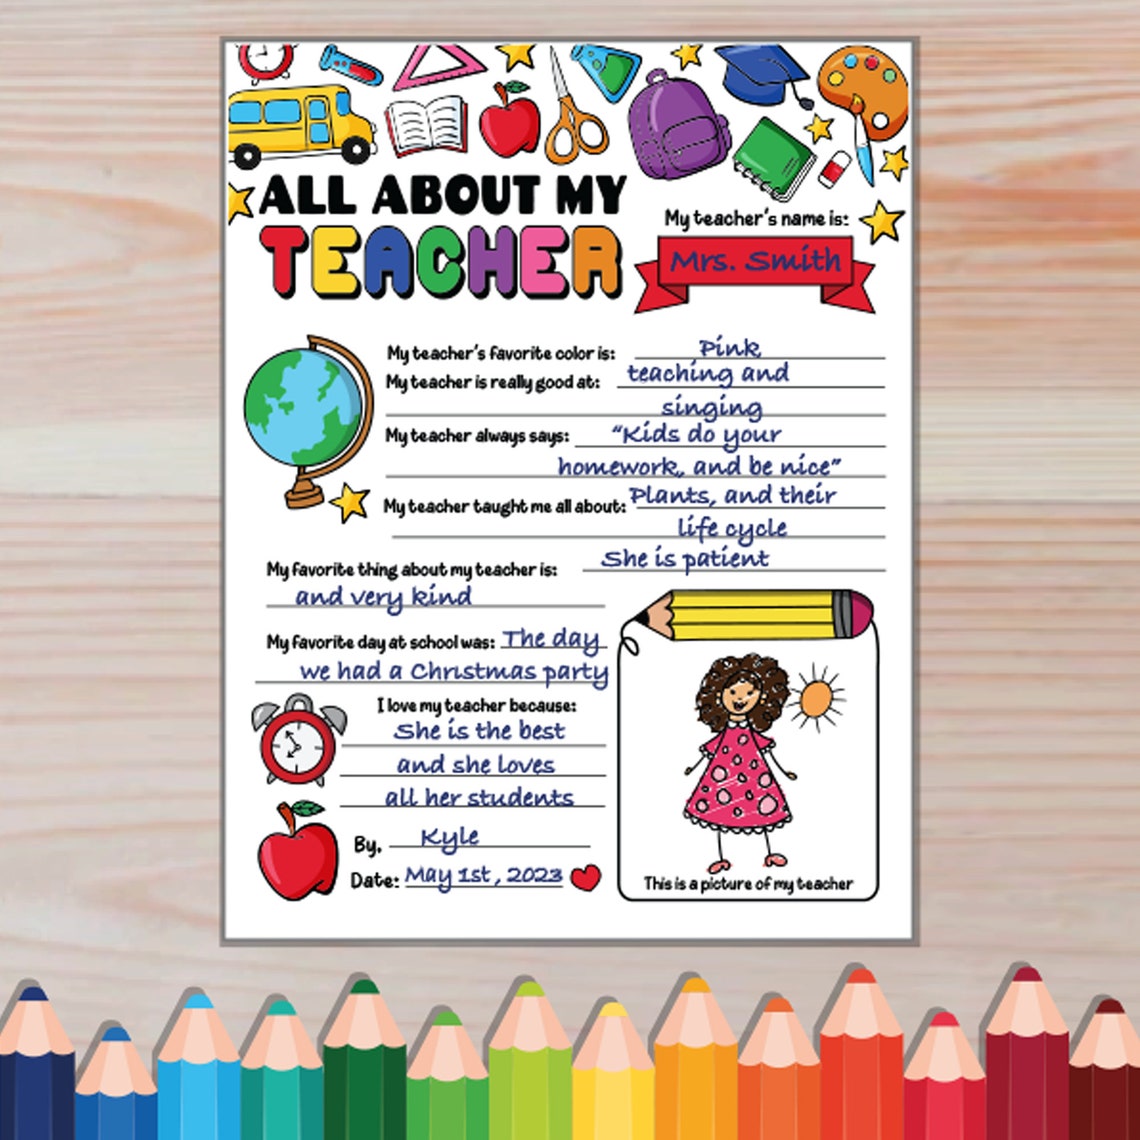 ALL ABOUT MY
TEACHER
My teacher's name is:
Mrs. Smith
My teacher's favorite color is: Pink
My teacher is really good at: teaching and
singing
My teacher always says: "Kids do your
homework, and be nice"
My teacher taught me all about: Plants, and their
life cycle
My favorite thing about my teacher is: She is patient
and very kind
My favorite day at school was: The day
we had a Christmas party
I love my teacher because:
She is the best
and she loves
all her students
By, Kyle
Date: May 1st, 2023
This is a picture of my teacher